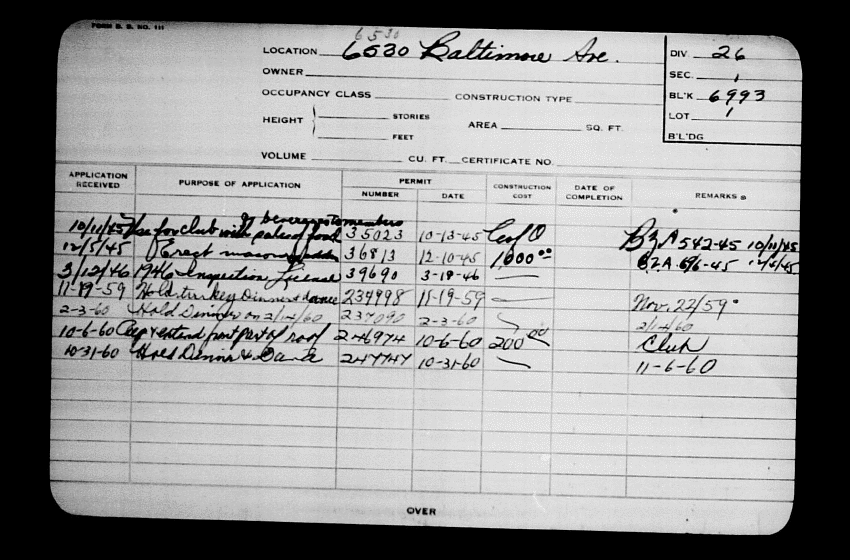 FORM B. B. NO. 111
6530
LOCATION 6530 Baltimore Ave.
DIV. 26
OWNER
SEC. 1
OCCUPANCY CLASS CONSTRUCTION TYPE
BL'K 6993
HEIGHT STORIES FEET AREA SQ. FT.
LOT 1
B'L'DG
VOLUME CU. FT. CERTIFICATE NO.
APPLICATION RECEIVED PURPOSE OF APPLICATION PERMIT NUMBER DATE CONSTRUCTION COST DATE OF COMPLETION REMARKS
of beverages to members
10/11/45 Use for club with sale of food 35023 10-13-45 C of O BZA 542-45 10/11/45
12/5/45 Erect masonry addn 36813 12-10-45 1,000 00 BZA 696-45 12/4/45
3/12/46 1946 Inspection License 39690 3-19-46
11-19-59 Hold turkey Dinner & dance 234998 11-19-59 Nov. 22/59
2-3-60 Hold Dinner on 2/14/60 237090 2-3-60 2/14/60
10-6-60 extend part of roof 246974 10-6-60 200 00 Club
10-31-60 Hold Dinner & Dance 247747 10-31-60 11-6-60
OVER